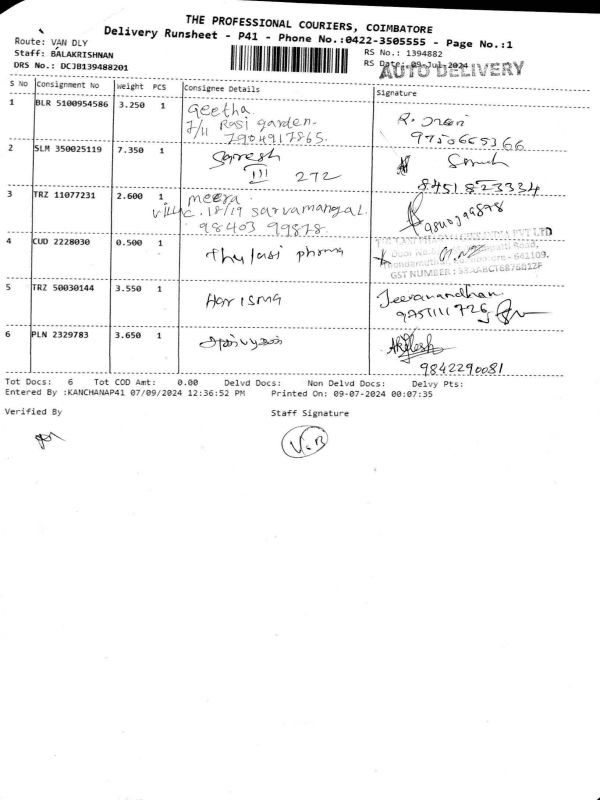 THE PROFESSIONAL COURIERS, COIMBATORE
Delivery Runsheet - P41 - Phone No.:0422-3505555 - Page No.:1
Route: VAN DLY
Staff: BALAKRISHNAN
DRS No.: DCJB139488201
RS No.: 1394882
RS Date: 09-Jul-2024
AUTO DELIVERY
S No Consignment No Weight PCS Consignee Details Signature
1 BLR 5100954586 3.250 1 Geetha
7/11 Rasi garden.
7904917865.
9750665366
2 SLM 350025119 7.350 1 Suresh
III 272
8451823334
3 TRZ 11077231 2.600 1 meera
villac. 18/19 sarvamangal.
98403 99878
4 CUD 2228030 0.500 1 Thulasi pharma
Road,
- 641109.
GST NUMBER :
5 TRZ 50030144 3.550 1 Harisma Jeevanandhan
9751111726
6 PLN 2329783 3.650 1 Akilesh
9842290081
Tot Docs: 6 Tot COD Amt: 0.00 Delvd Docs: Non Delvd Docs: Delvy Pts:
Entered By :KANCHANAP41 07/09/2024 12:36:52 PM Printed On: 09-07-2024 00:07:35
Verified By Staff Signature
V.B